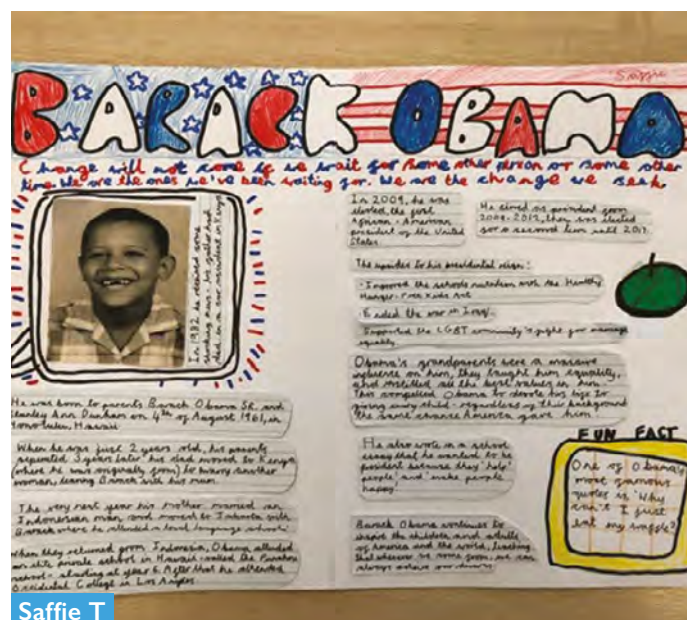 Saffie
BARACK OBAMA
Change will not come if we wait for some other person or some other
time. We are the ones we've been waiting for. We are the change we seek.
In 1982 he received some
shocking news - his father had
died in a car accident in Kenya
He was born to parents Barack Obama SR. and
Stanley Ann Dunham on 4th of August 1961, in
Honolulu, Hawaii
When he was just 2 years old, his parents
separated 3 years later his dad moved to Kenya
(where he was originally from) to marry another
woman, leaving Barack with his mum.
The very next year his mother married an
Indonesian man and moved to Jakarta with
Barack where he attended a local language school.
When they returned from Indonesia, Obama attended
an elite private school in Hawaii - called the Punahou
school - starting at year 6. After that he attended
Occidental College in Los Angles
In 2009, he was
elected the first
African - American
president of the United
States
He aimed as president from
2009 - 2013, then was elected
for a second term until 2017.
The upsides to his presidential reign:
- Improved the schools nutrition with the Healthy
Hunger - Free Kids Act
- Ended the war in Iraq.
Supported the LGBT community's right for marriage
equality
Obama's grandparents were a massive
influence on him, they taught him equality,
and instilled all the best values in him.
This compelled Obama to devote his life to
giving every child - regardless of their background
the same chance America gave him.
He also wrote in a school
essay that he wanted to be
president because they 'help'
people' and 'make people
happy'.
Barack Obama continues to
inspire the children and adults
of America and the world, teaching
that wherever we come from, we can
always achieve our dreams
FUN FACT
One of Obama's
most famous
quotes is 'Why
can't I just
eat my waffle?
Saffie T